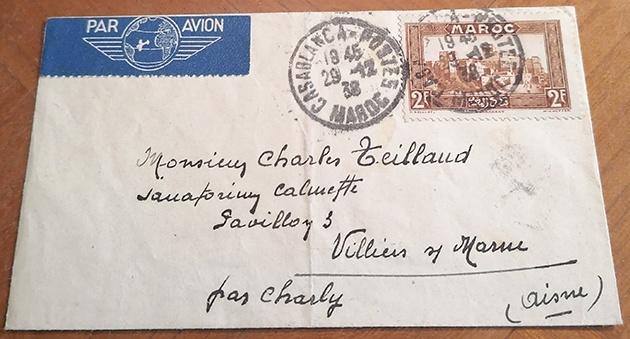 PAR AVION
CASABLANCA-POSTES
18 45
29 -12
38
MAROC
MAROC
2F 2F
Monsieur Charles Teillaud
Sanatorium Calmette
Pavillon 3
Villiers s/ Marne
par Charly
(Aisne)